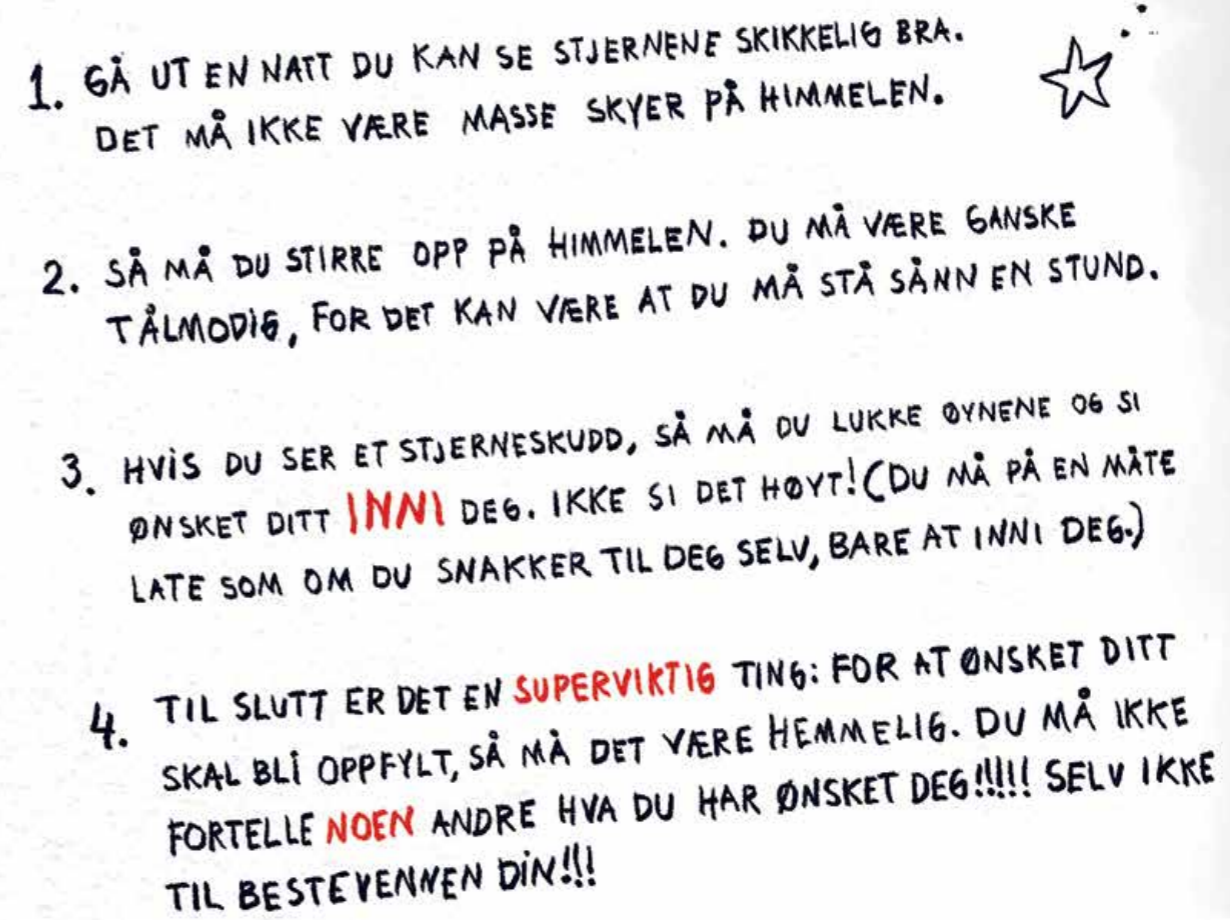 1. GÅ UT EN NATT DU KAN SE STJERNENE SKIKKELIG BRA.
DET MÅ IKKE VÆRE MASSE SKYER PÅ HIMMELEN.
2. SÅ MÅ DU STIRRE OPP PÅ HIMMELEN. DU MÅ VÆRE GANSKE
TÅLMODIG, FOR DET KAN VÆRE AT DU MÅ STÅ SÅNN EN STUND.
3. HVIS DU SER ET STJERNESKUDD, SÅ MÅ DU LUKKE ØYNENE OG SI
ØNSKET DITT INNI DEG. IKKE SI DET HØYT! (DU MÅ PÅ EN MÅTE
LATE SOM OM DU SNAKKER TIL DEG SELV, BARE AT INNI DEG.)
4. TIL SLUTT ER DET EN SUPERVIKTIG TING: FOR AT ØNSKET DITT
SKAL BLI OPPFYLT, SÅ MÅ DET VÆRE HEMMELIG. DU MÅ IKKE
FORTELLE NOEN ANDRE HVA DU HAR ØNSKET DEG!!!!! SELV IKKE
TIL BESTEVENNEN DIN!!!